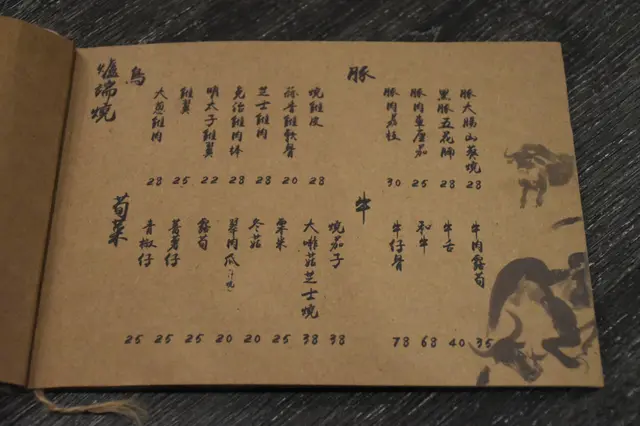 爐端燒
鳥
大蔥雞肉 28
雞翼 25
明太子雞翼 22
免治雞肉棒 28
芝士雞肉 28
蒜香雞軟骨 20
燒雞皮 28
豚
豚肉柱 30
豚肉車厘茄 25
黑豚五花腩 28
豚大腸山葵燒 28
荀菜
青椒仔 25
蕃薯仔 25
露荀 25
翠肉瓜 20
冬菇 20
粟米 25
大啡菇芝士燒 38
燒茄子 38
牛
牛仔骨 78
和牛 68
牛舌 40
牛肉露荀 35